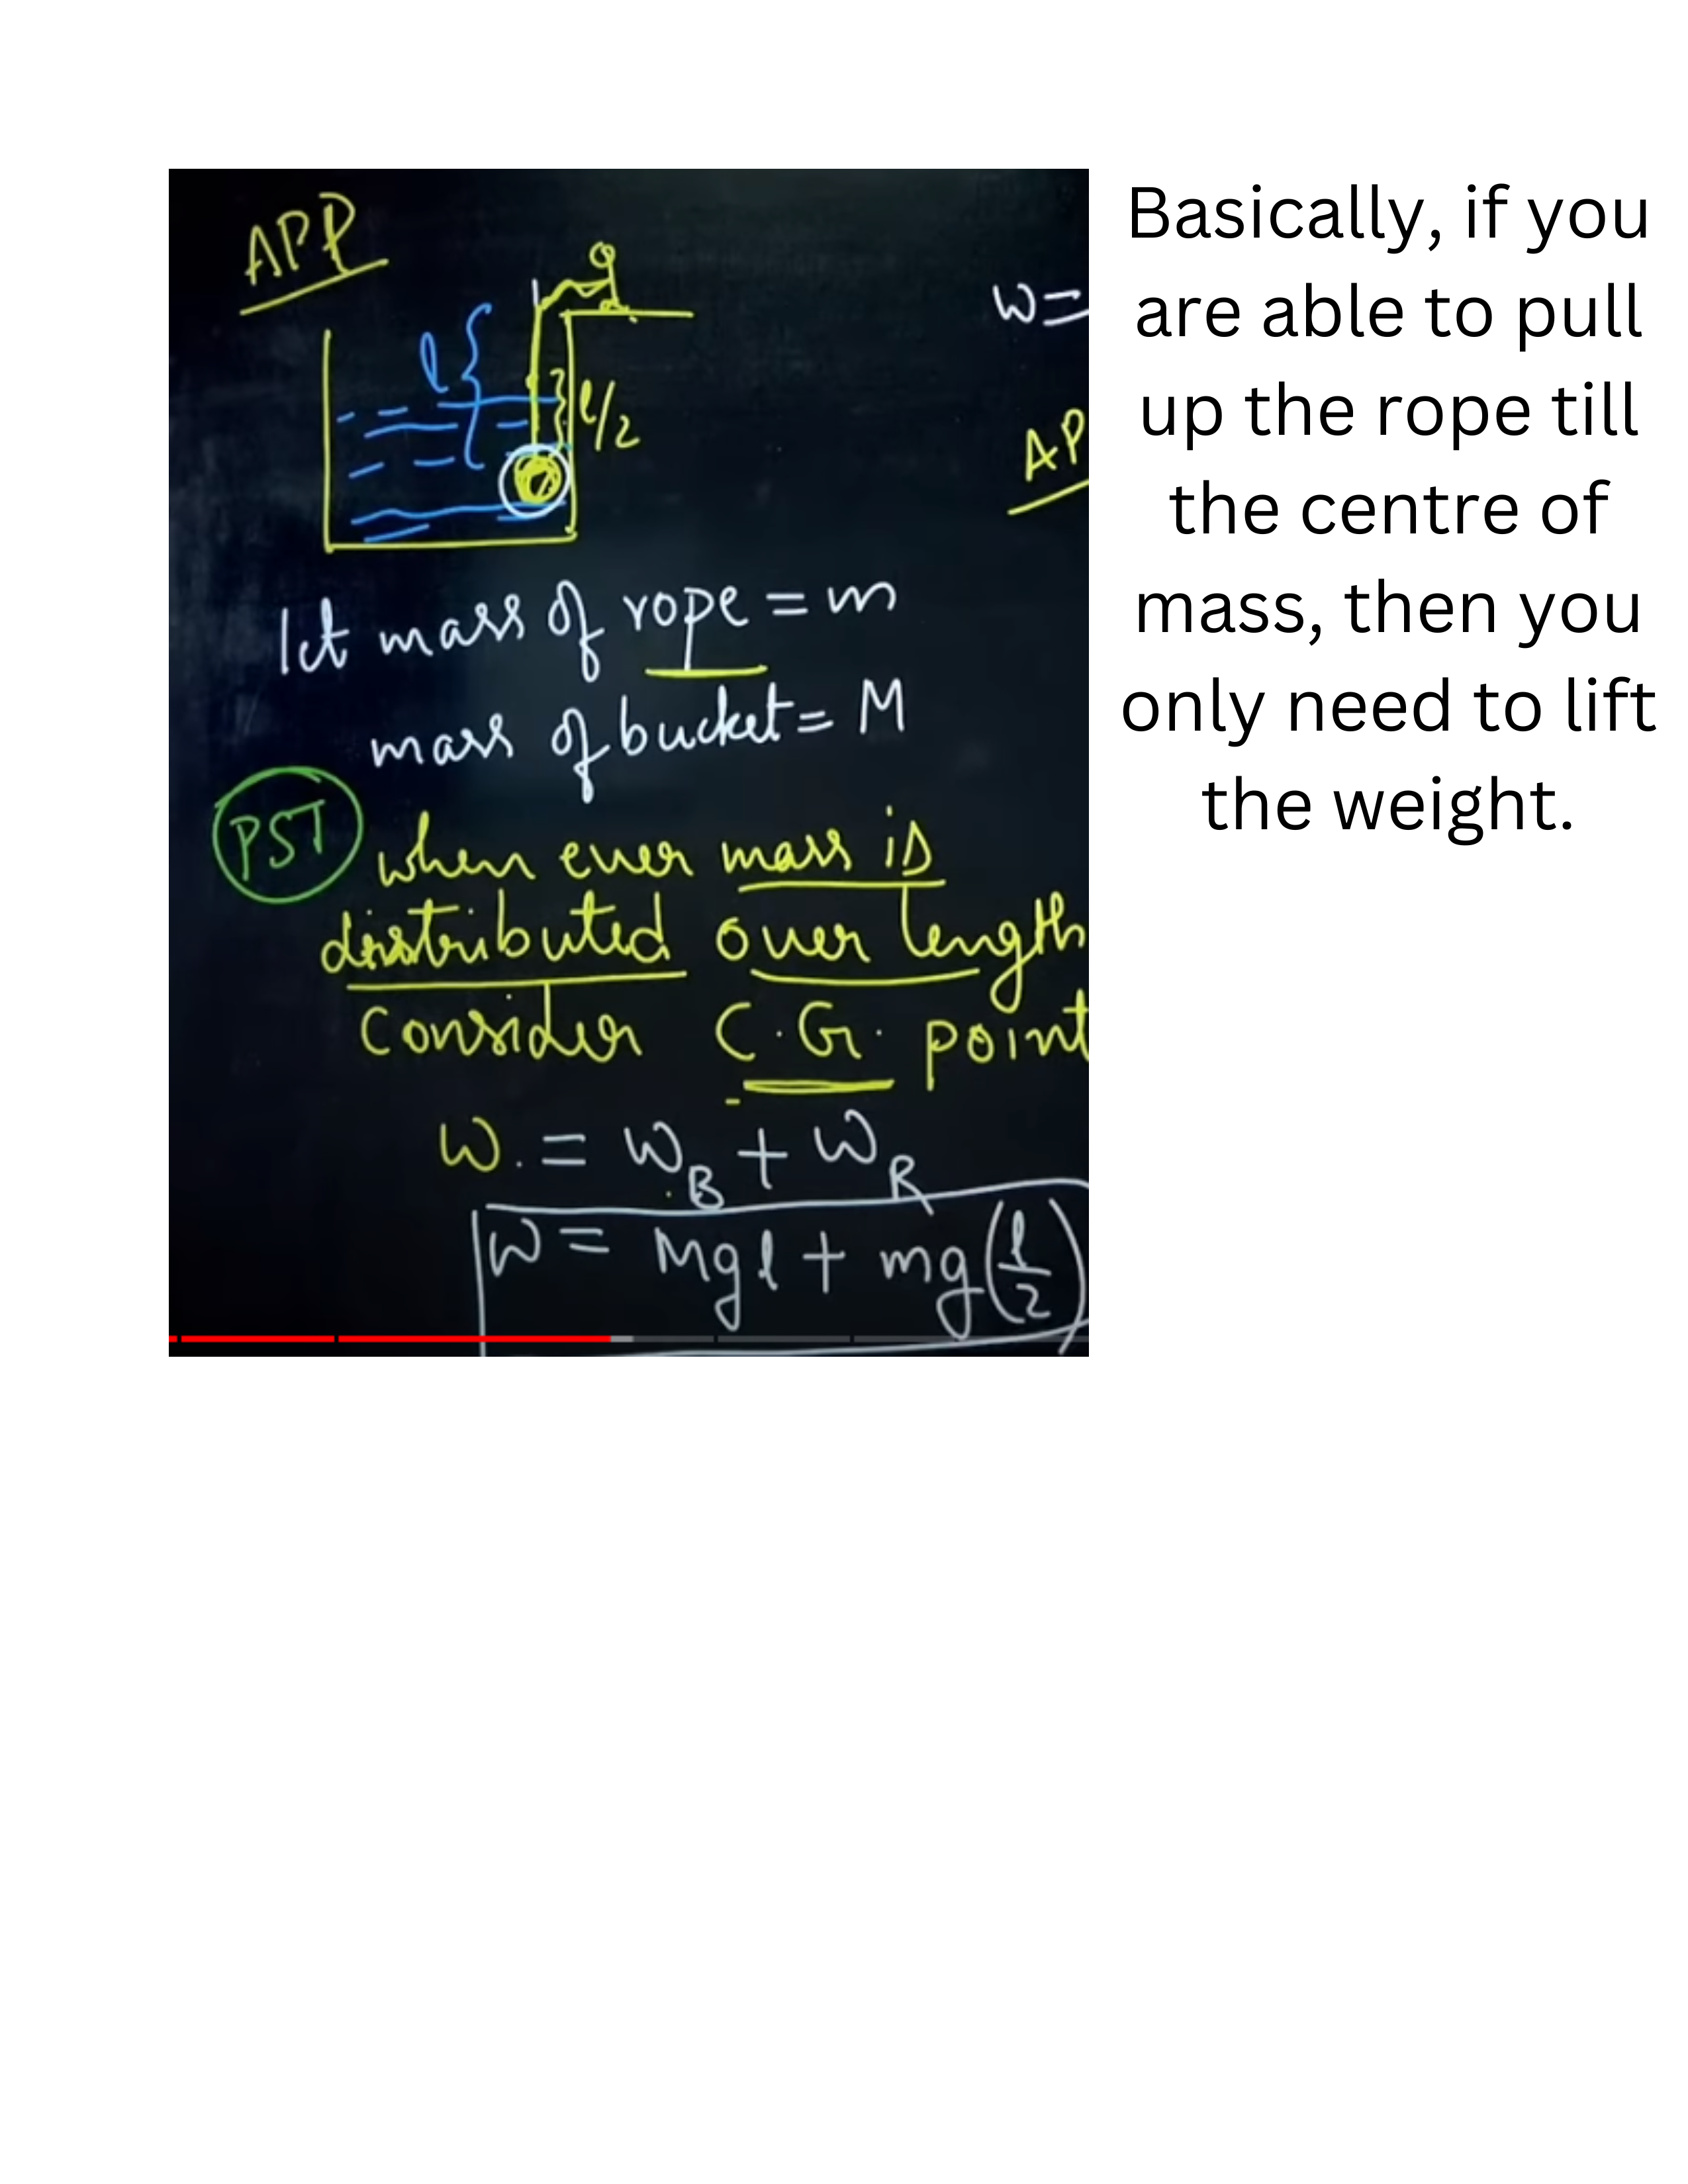 APP
l
l/2
let mass of rope = m
mass of bucket = M
PST
when ever mass is
distributed over length
consider C.G. point
W. = W_B + W_R
W = Mgl + mg(l/2)
W =
AP
Basically, if you
are able to pull
up the rope till
the centre of
mass, then you
only need to lift
the weight.